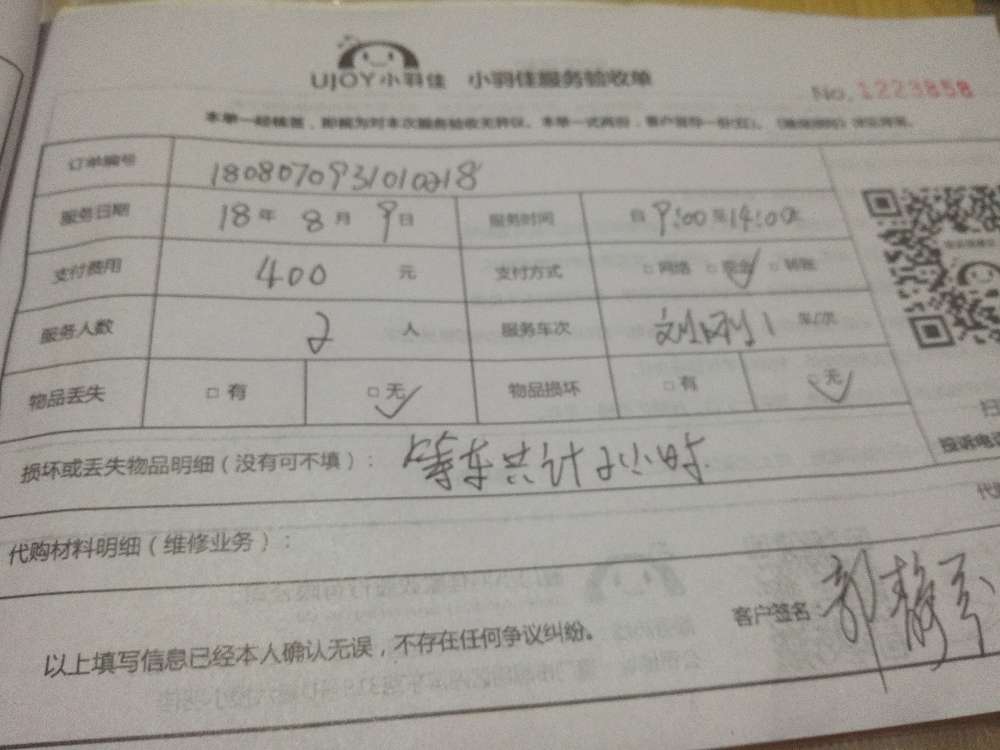 UJOY小羽佳 小羽佳服务验收单
No.1223858
本单一经核签,即视为对本次服务验收无异议。本单一式两份,客户留存一份
订单编号 1808070931010218
服务日期 18年 8月 9日 服务时间 自9:00至14:00
支付费用 400 元 支付方式 □网络 □现金✓ □转账
服务人数 2 人 服务车次 1 车/次
物品丢失 □有 □无✓ 物品损坏 □有 □无✓
扫
损坏或丢失物品明细(没有可不填): 等车共计2小时 投诉电
代购材料明细(维修业务): 代
客户签名:郭
以上填写信息已经本人确认无误,不存在任何争议纠纷。